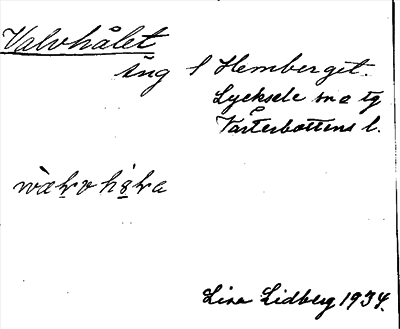 Valvhålet
äng l Hemberget.
Lycksele sn o tg
Västerbottens l.
Lisa Lidberg 1934.